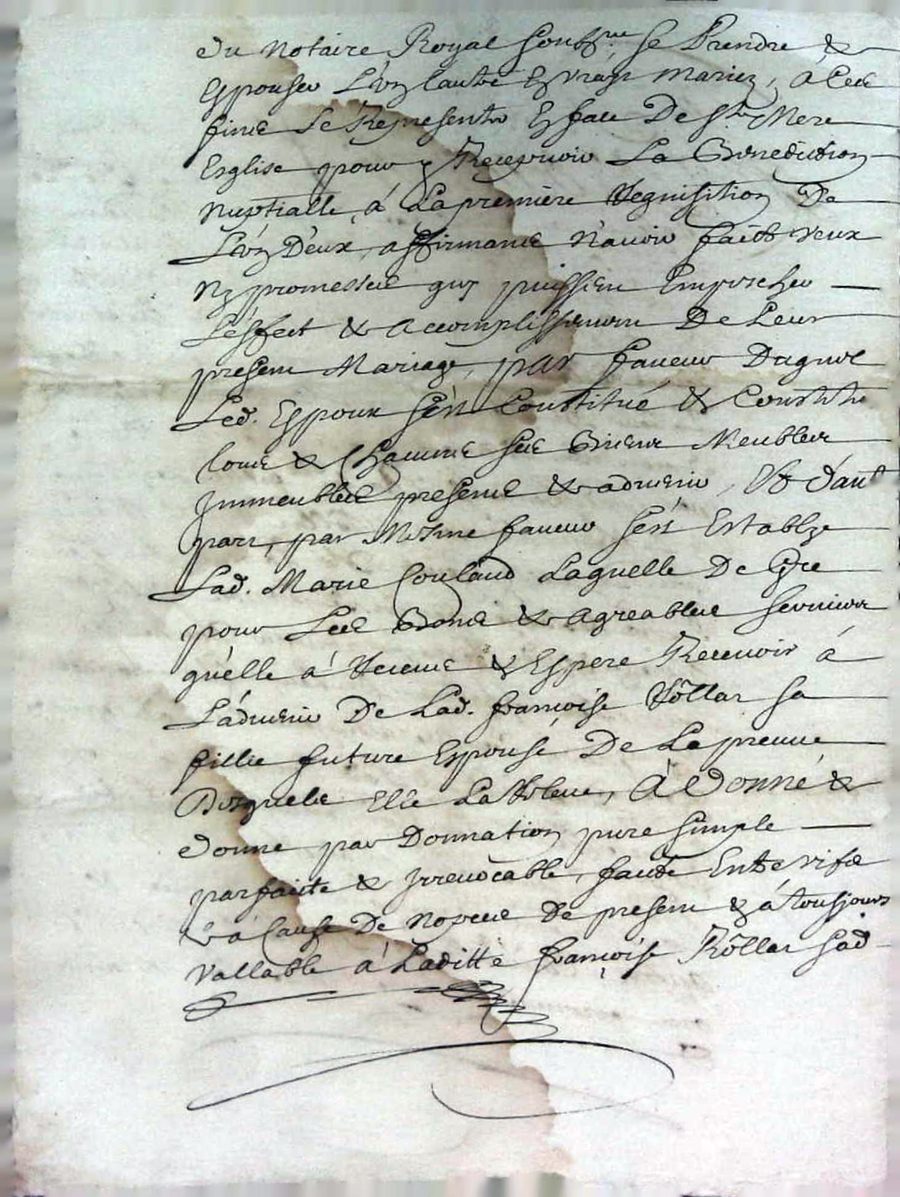 du Notaire Royal soub.né se Prendre &
Espouser L'ūn lautre En vrays mariez, á Ces
fins se Representer En face De s.te Mere
Esglise pour y Recepvoir La Benediction
Nuptialle, á La premiere Requisition De
L'ūn D'eux, affirmants n'avoir faict veux
Ny promesses quy puissent Empescher
L'effect & accomplissement De Leur
present Mariage, par faveur Duquel
Led. Espoux s'est Constitué & Constitue
tous & Chacuns ses Biens Meubles
Immeubles presents & advenir, Et d'aut.
part, par Mesme faveur s'est Establye
Lad. Marie Coulaud Laquelle De Gre
pour Les Bons & agreables services
qu'elle á Receus & Espere Recevoir á
L'advenir De Lad. françoise Rôllar sa
fillie future Espouse De La preuve
Desquels Elle La Releve, Á Donné &
donne par Donnation pure simple
parfaite & Irrevocable, faicte Entre vifs
& á Cause De Nopces de present & á tousjours
Vallable á Laditte françoise Rôllar sad.